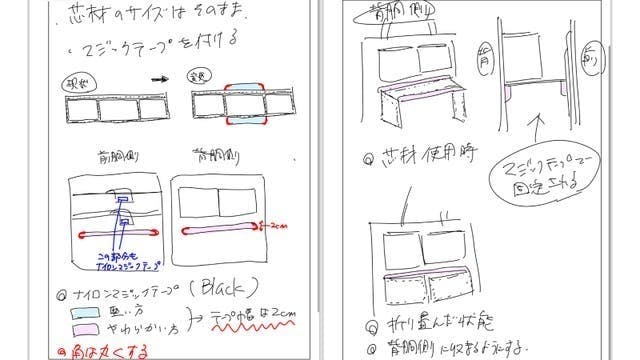 芯材のサイズはそのまま.
・マジックテープを付ける
現状
変更
前胴側
背胴側
←2cm
この部分も
ナイロンマジックテープ
◎ ナイロンマジックテープ (Black)
堅い方
やわらかい方
テープ幅は2cm
◎角は丸くする
背胴側
背胴
前側
◎ 芯材使用時
マジックテープで
固定される
◎ 折り畳んだ状態
◎ 背胴側に収まるようにする.